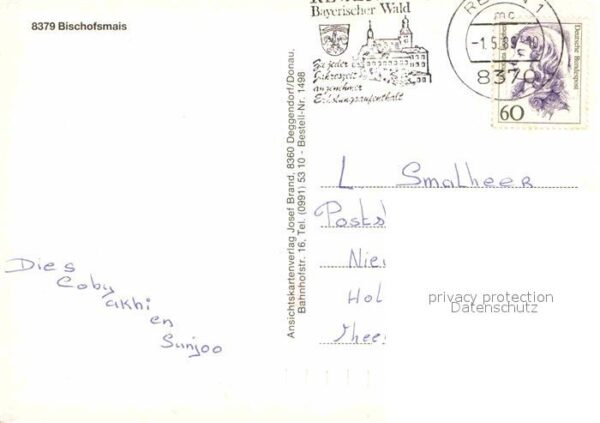 8379 Bischofsmais
Bayerischer Wald
Zu jeder
Jahreszeit
angenehmer
Erholungsaufenthalt
1
mc
-1.5.89-10
8370
Deutsche Bundespost
60
Ansichtskartenverlag Josef Brand, 8360 Deggendorf/Donau,
Bahnhofstr. 16, Tel. (0991) 53 10 - Bestell-Nr. 1498
L. Smalheer
Posts
Nie
Hol
privacy protection
Datenschutz
Dies
Coby
akhi
en
Sunjoo